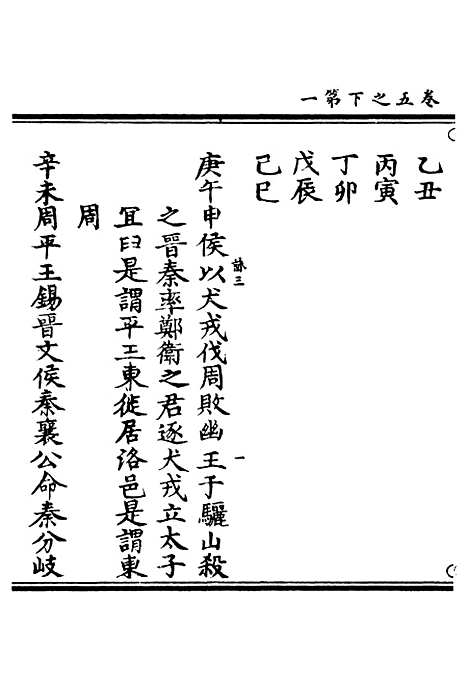 卷五之下第一
乙丑
丙寅
丁卯
戊辰
己巳
庚午申侯以犬戎伐周敗幽王于驪山殺
之晉秦率鄭衛之君逐犬戎立太子
宜臼是謂平王東徙居洛邑是謂東
周
辛未周平王錫晉文侯秦襄公命秦分岐